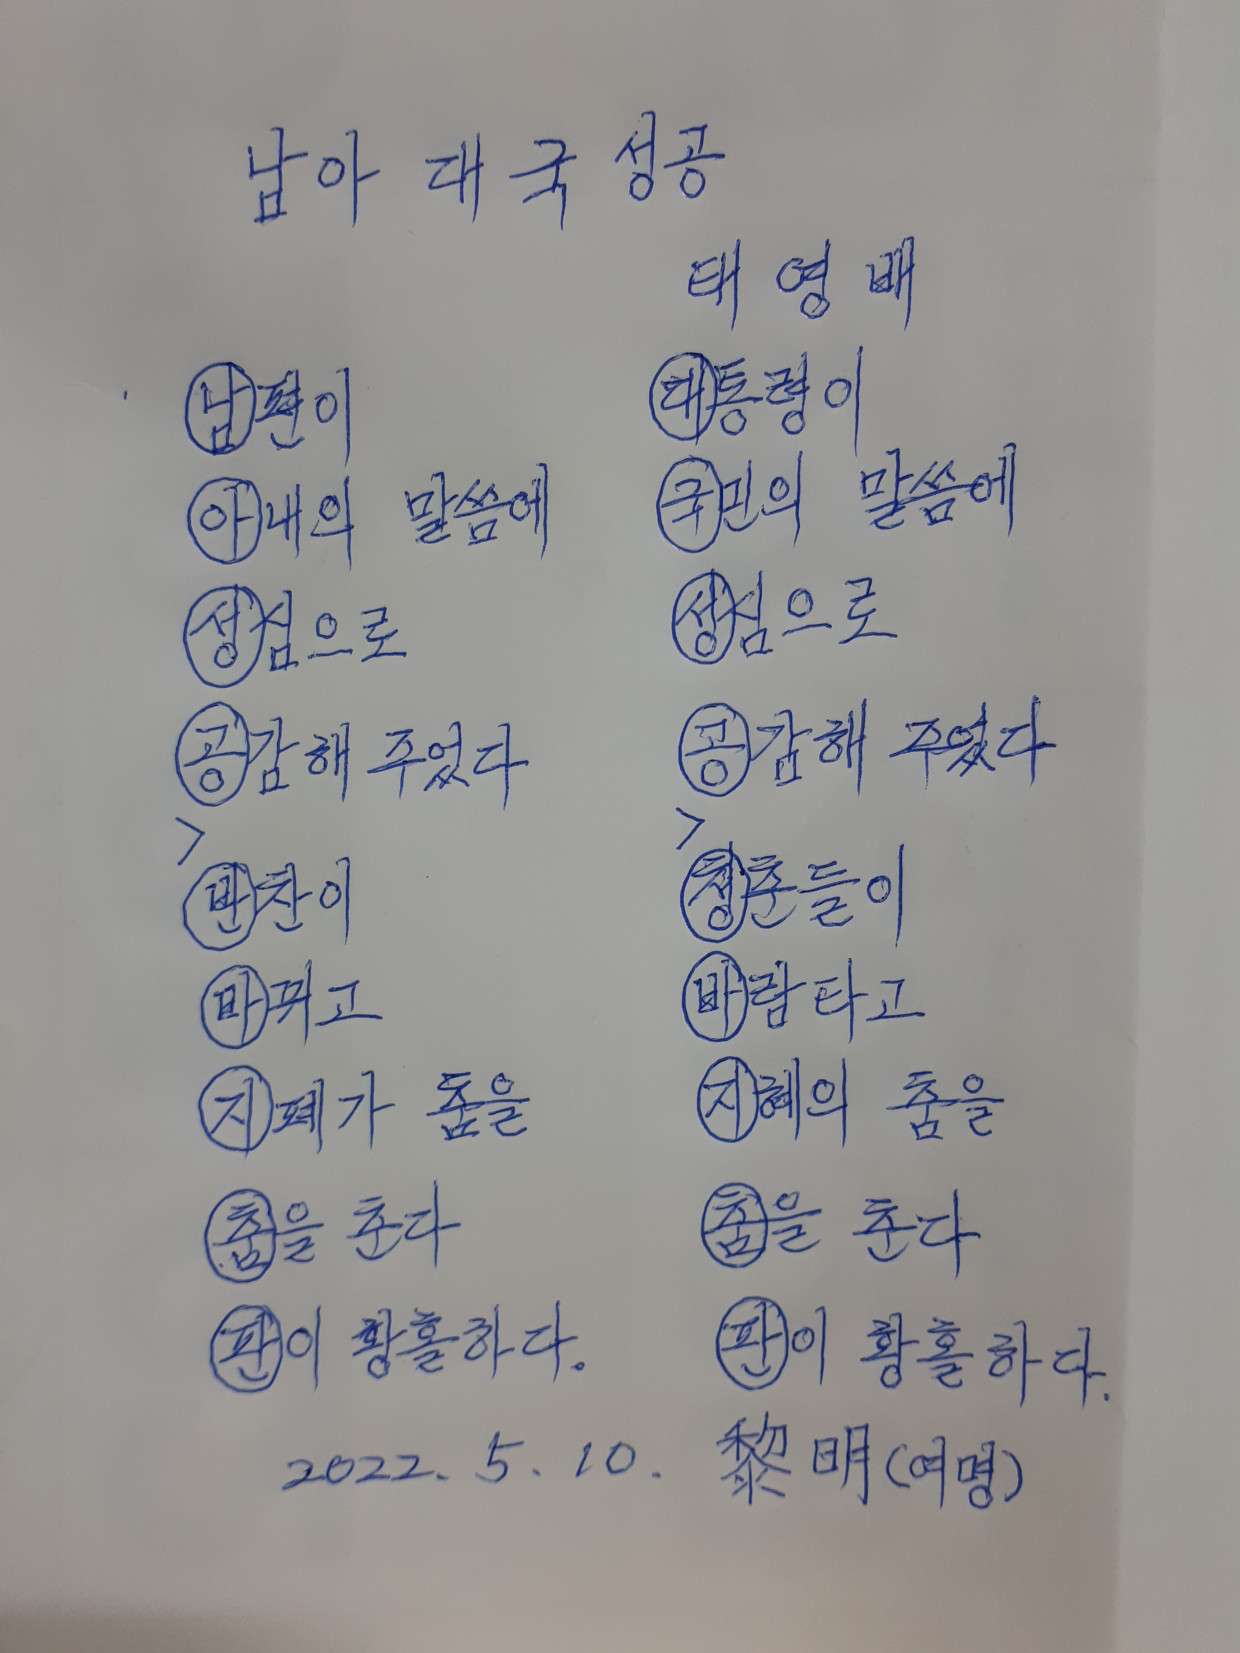 남아 대국 성공
태영배
남편이
아내의 말씀에
성심으로
공감해 주었다
>
반찬이
바뀌고
지폐가 춤을
춤을 춘다
판이 황홀하다.
대통령이
국민의 말씀에
성심으로
공감해 주었다
>
청춘들이
바람타고
지혜의 춤을
춤을 춘다
판이 황홀하다.
2022. 5. 10. 黎明(여명)